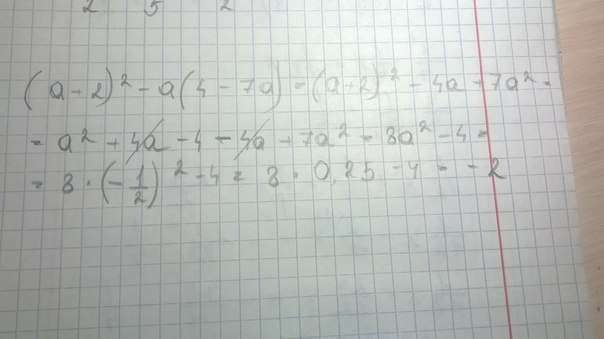 2 5 2
(a+2)² - a(4 - 7a) = (a+2)² - 4a + 7a² =
= a² + 4a - 4 - 4a + 7a² = 8a² - 4 =
= 8 · (-1/2)² - 4 = 8 · 0,25 - 4 = -2